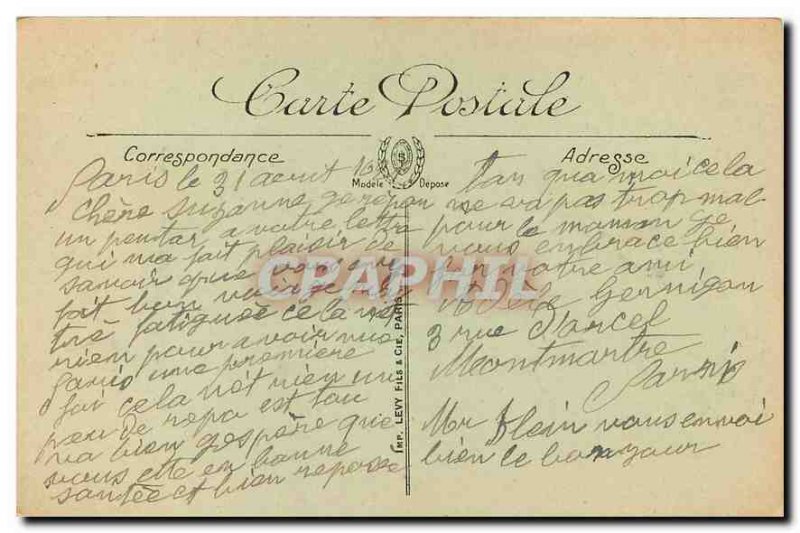 Carte Postale
Correspondance
Adresse
Modèle Déposé
Paris le 31 aout 16
Chère Suzanne je répon
un peu tar a votre lettre
qui ma fait plaisir de
savoir que vous
fait bon voiage
trè fatiguée cela
rien pour avoir vue
Paris une première
foi cela nêt rien un
peu de repo est tou
va bien gespère que
vous ette en bonne
santée et bien reposée
tan qua moi cela
ne va pas trop mal
pour le moman ge
vous embrace bien
votre ami
Gernigon
3 rue Darcel
Montmartre
Paris
Mr Klein vous envoi
bien le bonjour
IMP. LEVY FILS & CIE, PARIS
CPAPHIL